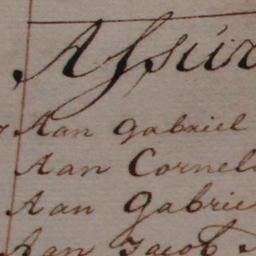 Assur
Aan Gabriel
Aan Cornel
Aan Gabrie
Aan Jacob